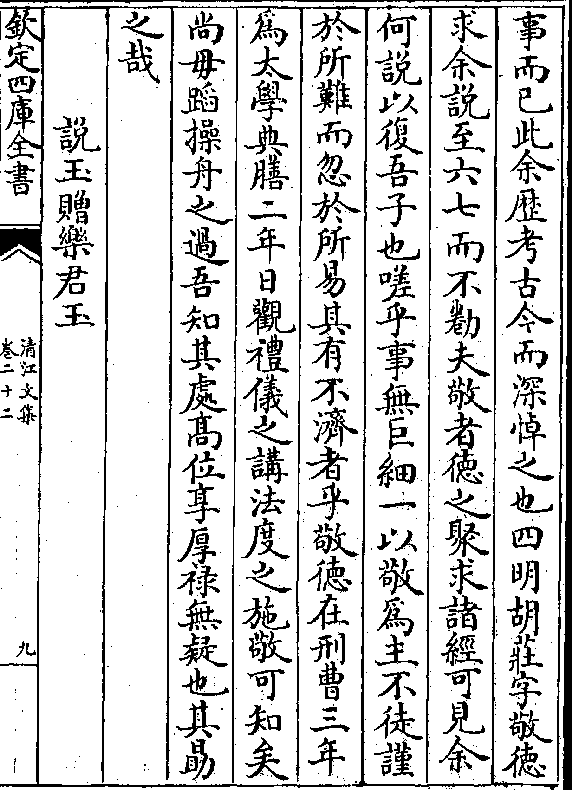 事而已此余歴考古今而深悼之也四明胡莊字敬徳
求余説至六七而不勌夫敬者徳之聚求諸經可見余
何説以復吾子也嗟乎事無巨細一以敬為主不徒謹
於所難而忽於所易其有不濟者乎敬徳在刑曹三年
為太學典膳二年日觀禮儀之講法度之施敬可知矣
尚毋蹈操舟之過吾知其處髙位享厚禄無疑也其勗
之哉
說玉贈樂君玉
欽定四庫全書
清江文集
卷二十二
九